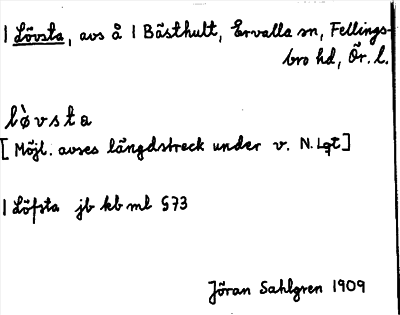 | Lövsta, avs å | Bästhult, Ervalla sn, Fellings-
bro hd, Ör. l.
lø̀vsta
[Möjl. avses längdstreck under v. N. Lgt]
| Löfsta jb kb ml §73
Jöran Sahlgren 1909